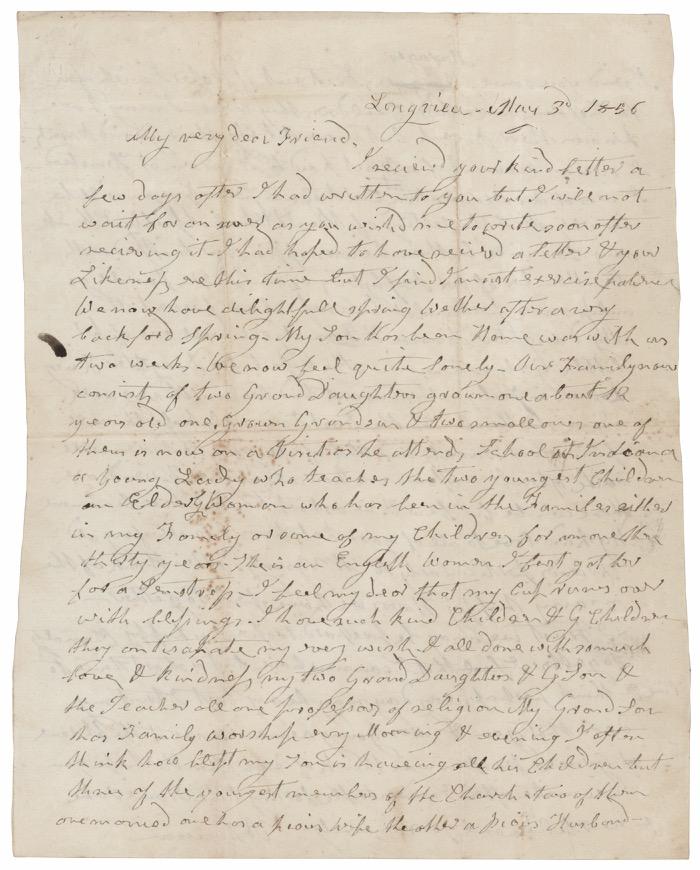 Longview - May 3d 1856
My very dear Friend.
I recievd your kind letter a
few days after I had written to you but I will not
wait for an swer as you wishd me to write soon after
recieving it. I had hoped to have recievd a letter & your
Likeness ere this time but I find I must exercise patience
We now have delightfull spring wether after a very
backford spring. My Son has been Home was with us
two weeks - We now feel quite lonely - Our Family now
consists of two Grand Daughters grown one about 12
years old one Grown Grandson & two small ones one of
them is now on a Visit as he attends School in Indiana
a Young Lady who teaches the two youngest Children
an Elderly Woman who has been in the Families either
in my Family or some of my Children for more than
thirty years. She is an English Women I first got her
for a Semstress - I feel my dear that my Cup runs over
with blessings. I have such kind Children & G Children
they anticapate my every wish & all done with so much
love & kindness my two Grand Daughters & G Son &
the Teacher all are professors of religion My Grand Son
has Family worship evry Morning & evening I often
think how blest my Son is haveing all his Children but
three of the youngest members of the Church two of them
are married one has a pious wife the other a pious Husband -